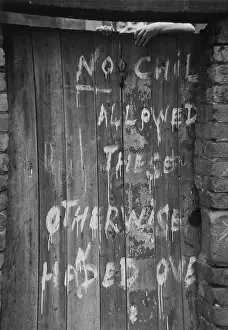 NO CHIL
ALLOWED
OTHERWISE
HANDED OVE